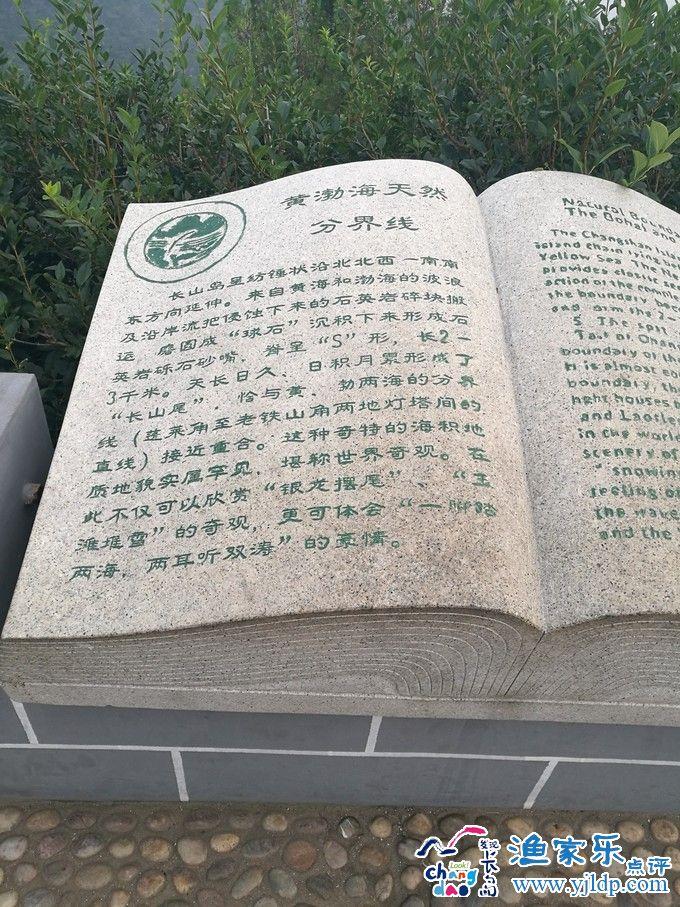 黄渤海天然
分界线
长山岛呈纺锤状沿北北西—南南
东方向延伸。来自黄海和渤海的波浪
及沿岸流把侵蚀下来的石英岩碎块搬
运、磨圆成“球石”沉积下来形成石
英岩砾石砂嘴，脊呈“S”形，长2-
3千米。天长日久、日积月累形成了
“长山尾”，恰与黄、渤两海的分界
线（蓬莱角至老铁山角两地灯塔间的
直线）接近重合。这种奇特的海积地
质地貌实属罕见，堪称世界奇观。在
此不仅可以欣赏“银龙摆尾”、“玉
滩堆雪”的奇观，更可体会“一脚踏
两海，两耳听双涛”的豪情。
Natural Bound
The Bohai and
The Changshan Isla
island chain lying N
Yellow Sea. The N
provides
action of the
the boundary
and arm the 2-
S. The spit
Tail of Chang
boundary of the
is almost
boundary, th
light houses b
and Laotie
in the world
scenery of
"snowin
feeling of
the wake
and the
发现长岛
Look!
chang dao
渔家乐点评
www.yjldp.com